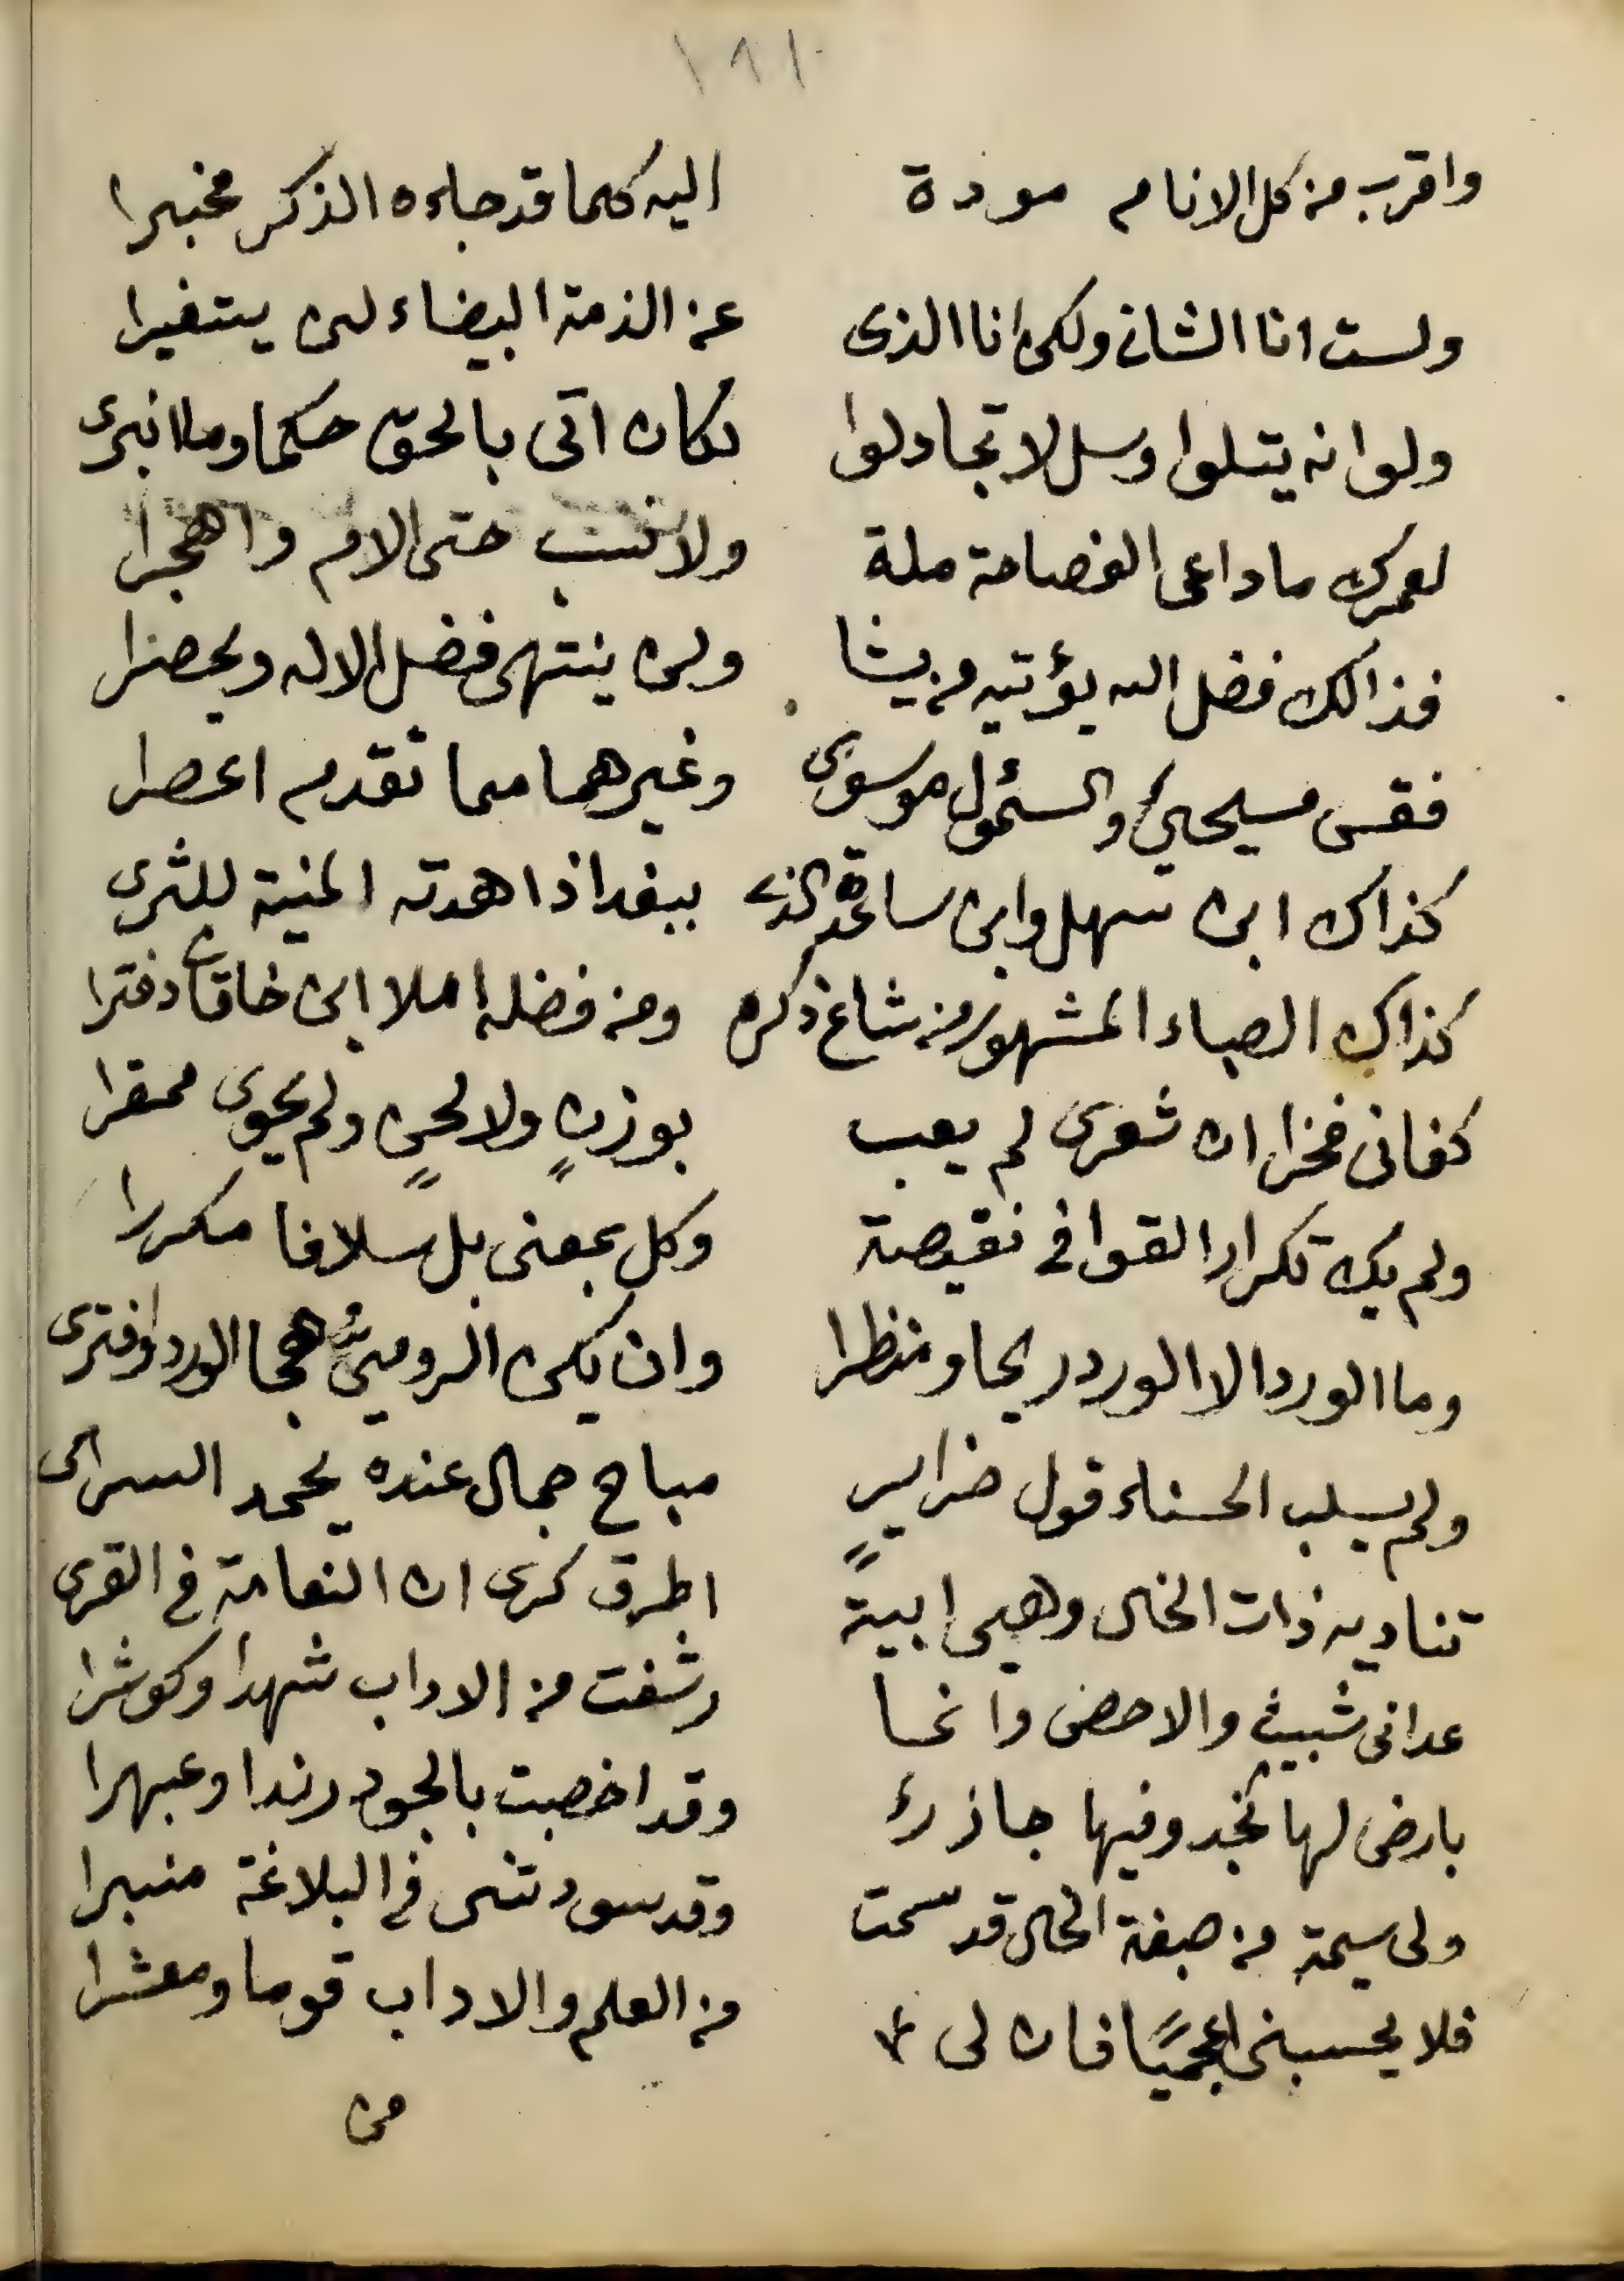 ١٨١
واقرب من كل الانام مودة اليه كما قد جاءه الذكر مخبرا
ولست انا الشاني ولكن انا الذي عن الذمة البيضاء لن يتغيرا
ولو انه يتلوا وسل لا تجادلوا لكان اتى بالحق حكما وما انبرى
لعمرك ما داعى الفصاحة ملة ولا نسب حتى الام واهجرا
فذالك فضل الله يؤتيه من يشا ولن ينتهى فضل الاله ويحصرا
فقس مسيحي والسئمول موسوى وغيرهما مما تقدم اعصرا
كذاك ابن سهل وابن ساعدة الذي ببغداذ اهدته المنية للثرى
كذاك الصباء المشهور من شاع ذكره ومن فضله املا ابن خاقان دفترا
كفانى فخرا ان شعرى لم يعب بوزنٍ ولا لحنٍ ولم يحوى محقرا
ولم يك تكرار القوافي نقيصة وكل بمعنى بل سلافا مكررا
وما الورد الا الورد ريحا ومنظرا وان يكن الرومىُّ هجا الورد وافترى
ولم يسلب الحسناء قول ضرايرٍ مباح جمال عنده يحمد السرى
تناديه ذات الخال وهى ابية اطرق كرى ان النعامة في القرى
عدانى شبيث والاحص وانما رشفت من الاداب شهدا وكوثرا
بارض لها نجد وفيها جاذرٌ وقد اخصبت بالجود رندا وعبهرا
ولى سيمة من صبغة الخال قد سمت وقد سودتنى في البلاغة منبرا
فلا يحسبنى اعجميًا فان لى من العلم والاداب قوما ومعشرا
من